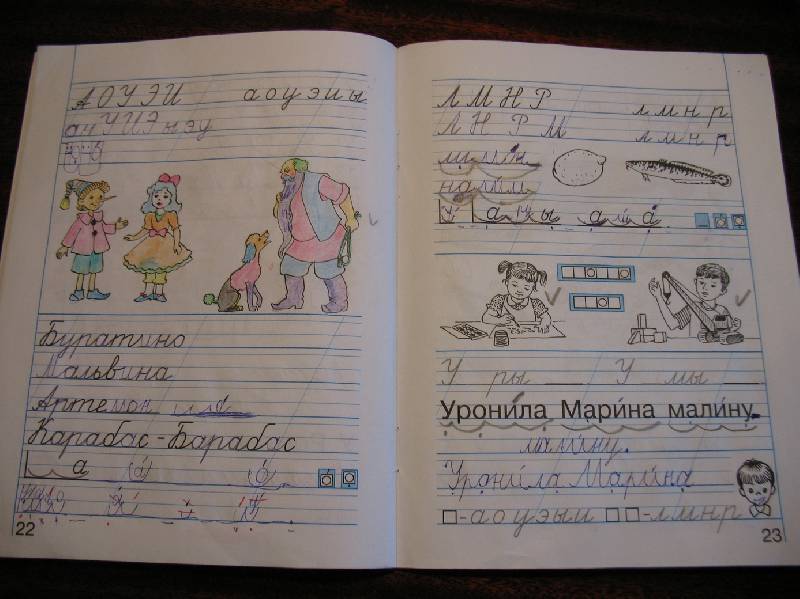 А О У Э И а о у э и ы
У И Э ы э у
Буратино
Мальвина
Артемон
Карабас-Барабас
а (а) (о)
22
Л М Н Р л м н р
Л Н Р М л м н р
лимон
налим
а ы а а
У ры У мы
Урони́ла Мари́на мали́ну.
малину.
Уронила Марина
- а о у э ы и - л м н р
23